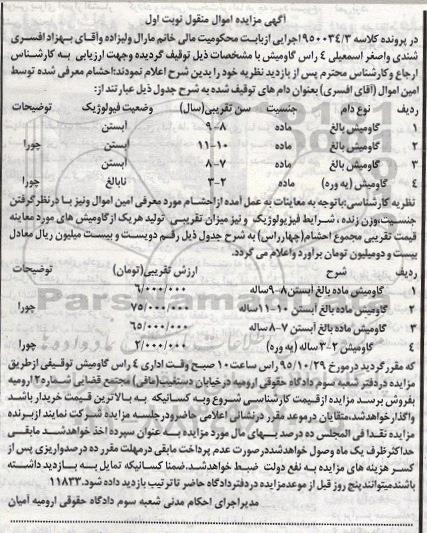 آگهی مزایده اموال منقول نوبت اول
در پرونده کلاسه ۹۵۰۰۰۳۴/۳ اجرایی ازبابت محکومیت مالی خانم مارال ولیزاده واقای بهزاد افسری
شندی واصغر اسمعیلی ۴ راس گاومیش با مشخصات ذیل توقیف گردیده وجهت ارزیابی به کارشناس
ارجاع وکارشناس محترم پس از بازدید نظریه خود را بدین شرح اعلام نمودند:احشام معرفی شده توسط
امین اموال (آقای افسری) بعنوان دام های توقیف شده به شرح جدول ذیل عبارتند از:
ردیف نوع دام جنسیت سن تقریبی(سال) وضعیت فیولوژیک توضیحات
۱ گاومیش بالغ ماده ۸-۹ آبستن
۲ گاومیش بالغ ماده ۱۰-۱۱ آبستن چورا
۳ گاومیش بالغ ماده ۷-۸ آبستن
۴ گاومیش (یه وره) ماده ۲-۳ نابالغ چورا
نظریه کارشناسی:باتوجه به معاینات به عمل آمده ازاحشام مورد معرفی امین اموال ونیز با درنظرگرفتن
جنسیت،وزن زنده ، شرایط فیزیولوژیک و نیز میزان تقریبی تولید هریک ازگاومیش های مورد معاینه
قیمت تقریبی مجموع احشام(چهارراس) به شرح جدول ذیل رقم دویست و بیست میلیون ریال معادل
بیست و دومیلیون تومان برآورد واعلام می گردد.
ردیف شرح ارزش تقریبی(تومان) توضیحات
۱ گاومیش ماده بالغ آبستن ۸-۹ساله ۶/۰۰۰/۰۰۰
۲ گاومیش ماده بالغ آبستن ۱۰-۱۱ساله ۷۵/۰۰۰/۰۰۰ چورا
۳ گاومیش ماده بالغ آبستن ۷-۸ ساله ۶۵/۰۰۰/۰۰۰
۴ گاومیش ۲-۳ ساله (یه وره) ۲/۰۰۰/۰۰۰ چورا
که مقرر گردید درمورخ ۹۵/۱۰/۲۹ راس ساعت ۱۰ صبح وقت اداری ۴ راس گاومیش توقیفی ازطریق
مزایده دردفتر شعبه سوم دادگاه حقوقی ارومیه درخیابان دستغیب(مافی) مجتمع قضایی شماره۲ ارومیه
بفروش برسد مزایده ازقیمت کارشناسی شروع وبه کسانیکه به بالاترین قیمت خریدار باشد
واگذار خواهدشد،متقاضیان درموعد مقرر درنشانی اعلامی حاضرودر جلسه مزایده شرکت نمایند ازبرنده
مزایده نقدا فی المجلس ده درصد بهای مال مورد مزایده به عنوان سپرده اخذ خواهدشد مابقی
حداکثر ظرف یک ماه وصول خواهدشددرصورت عدم پرداخت مابقی درمهلت مقرر ده درصدواریزی پس از
کسر هزینه های مزایده به نفع دولت ضبط خواهدشد.ضمنا کسانیکه تمایل به بازدید داشته
باشندمیتوانند پنج روز قبل از موعدمزایده دردفتردادگاه حاضر تاترتیب بازدید داده شود. ۱۱۸۳۳
مدیراجرای احکام مدنی شعبه سوم دادگاه حقوقی ارومیه آمیان